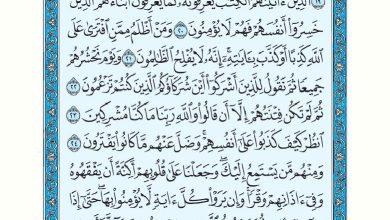 الَّذِينَ ءَاتَيْنَٰهُمُ ٱلْكِتَٰبَ يَعْرِفُونَهُۥ كَمَا يَعْرِفُونَ أَبْنَآءَهُمُ ٱلَّذِينَ
خَسِرُوٓا۟ أَنفُسَهُمْ فَهُمْ لَا يُؤْمِنُونَ ٢٠ وَمَنْ أَظْلَمُ مِمَّنِ ٱفْتَرَىٰ عَلَى
ٱللَّهِ كَذِبًا أَوْ كَذَّبَ بِـَٔايَٰتِهِۦٓ إِنَّهُۥ لَا يُفْلِحُ ٱلظَّٰلِمُونَ ٢١ وَيَوْمَ نَحْشُرُهُمْ
جَمِيعًا ثُمَّ نَقُولُ لِلَّذِينَ أَشْرَكُوٓا۟ أَيْنَ شُرَكَآؤُكُمُ ٱلَّذِينَ كُنتُمْ تَزْعُمُونَ ٢٢
ثُمَّ لَمْ تَكُن فِتْنَتُهُمْ إِلَّآ أَن قَالُوا۟ وَٱللَّهِ رَبِّنَا مَا كُنَّا مُشْرِكِينَ ٢٣
ٱنظُرْ كَيْفَ كَذَبُوا۟ عَلَىٰٓ أَنفُسِهِمْ وَضَلَّ عَنْهُم مَّا كَانُوا۟ يَفْتَرُونَ ٢٤
وَمِنْهُم مَّن يَسْتَمِعُ إِلَيْكَ وَجَعَلْنَا عَلَىٰ قُلُوبِهِمْ أَكِنَّةً أَن يَفْقَهُوهُ
وَفِىٓ ءَاذَانِهِمْ وَقْرًا وَإِن يَرَوْا۟ كُلَّ ءَايَةٍ لَّا يُؤْمِنُوا۟ بِهَا حَتَّىٰٓ إِذَا